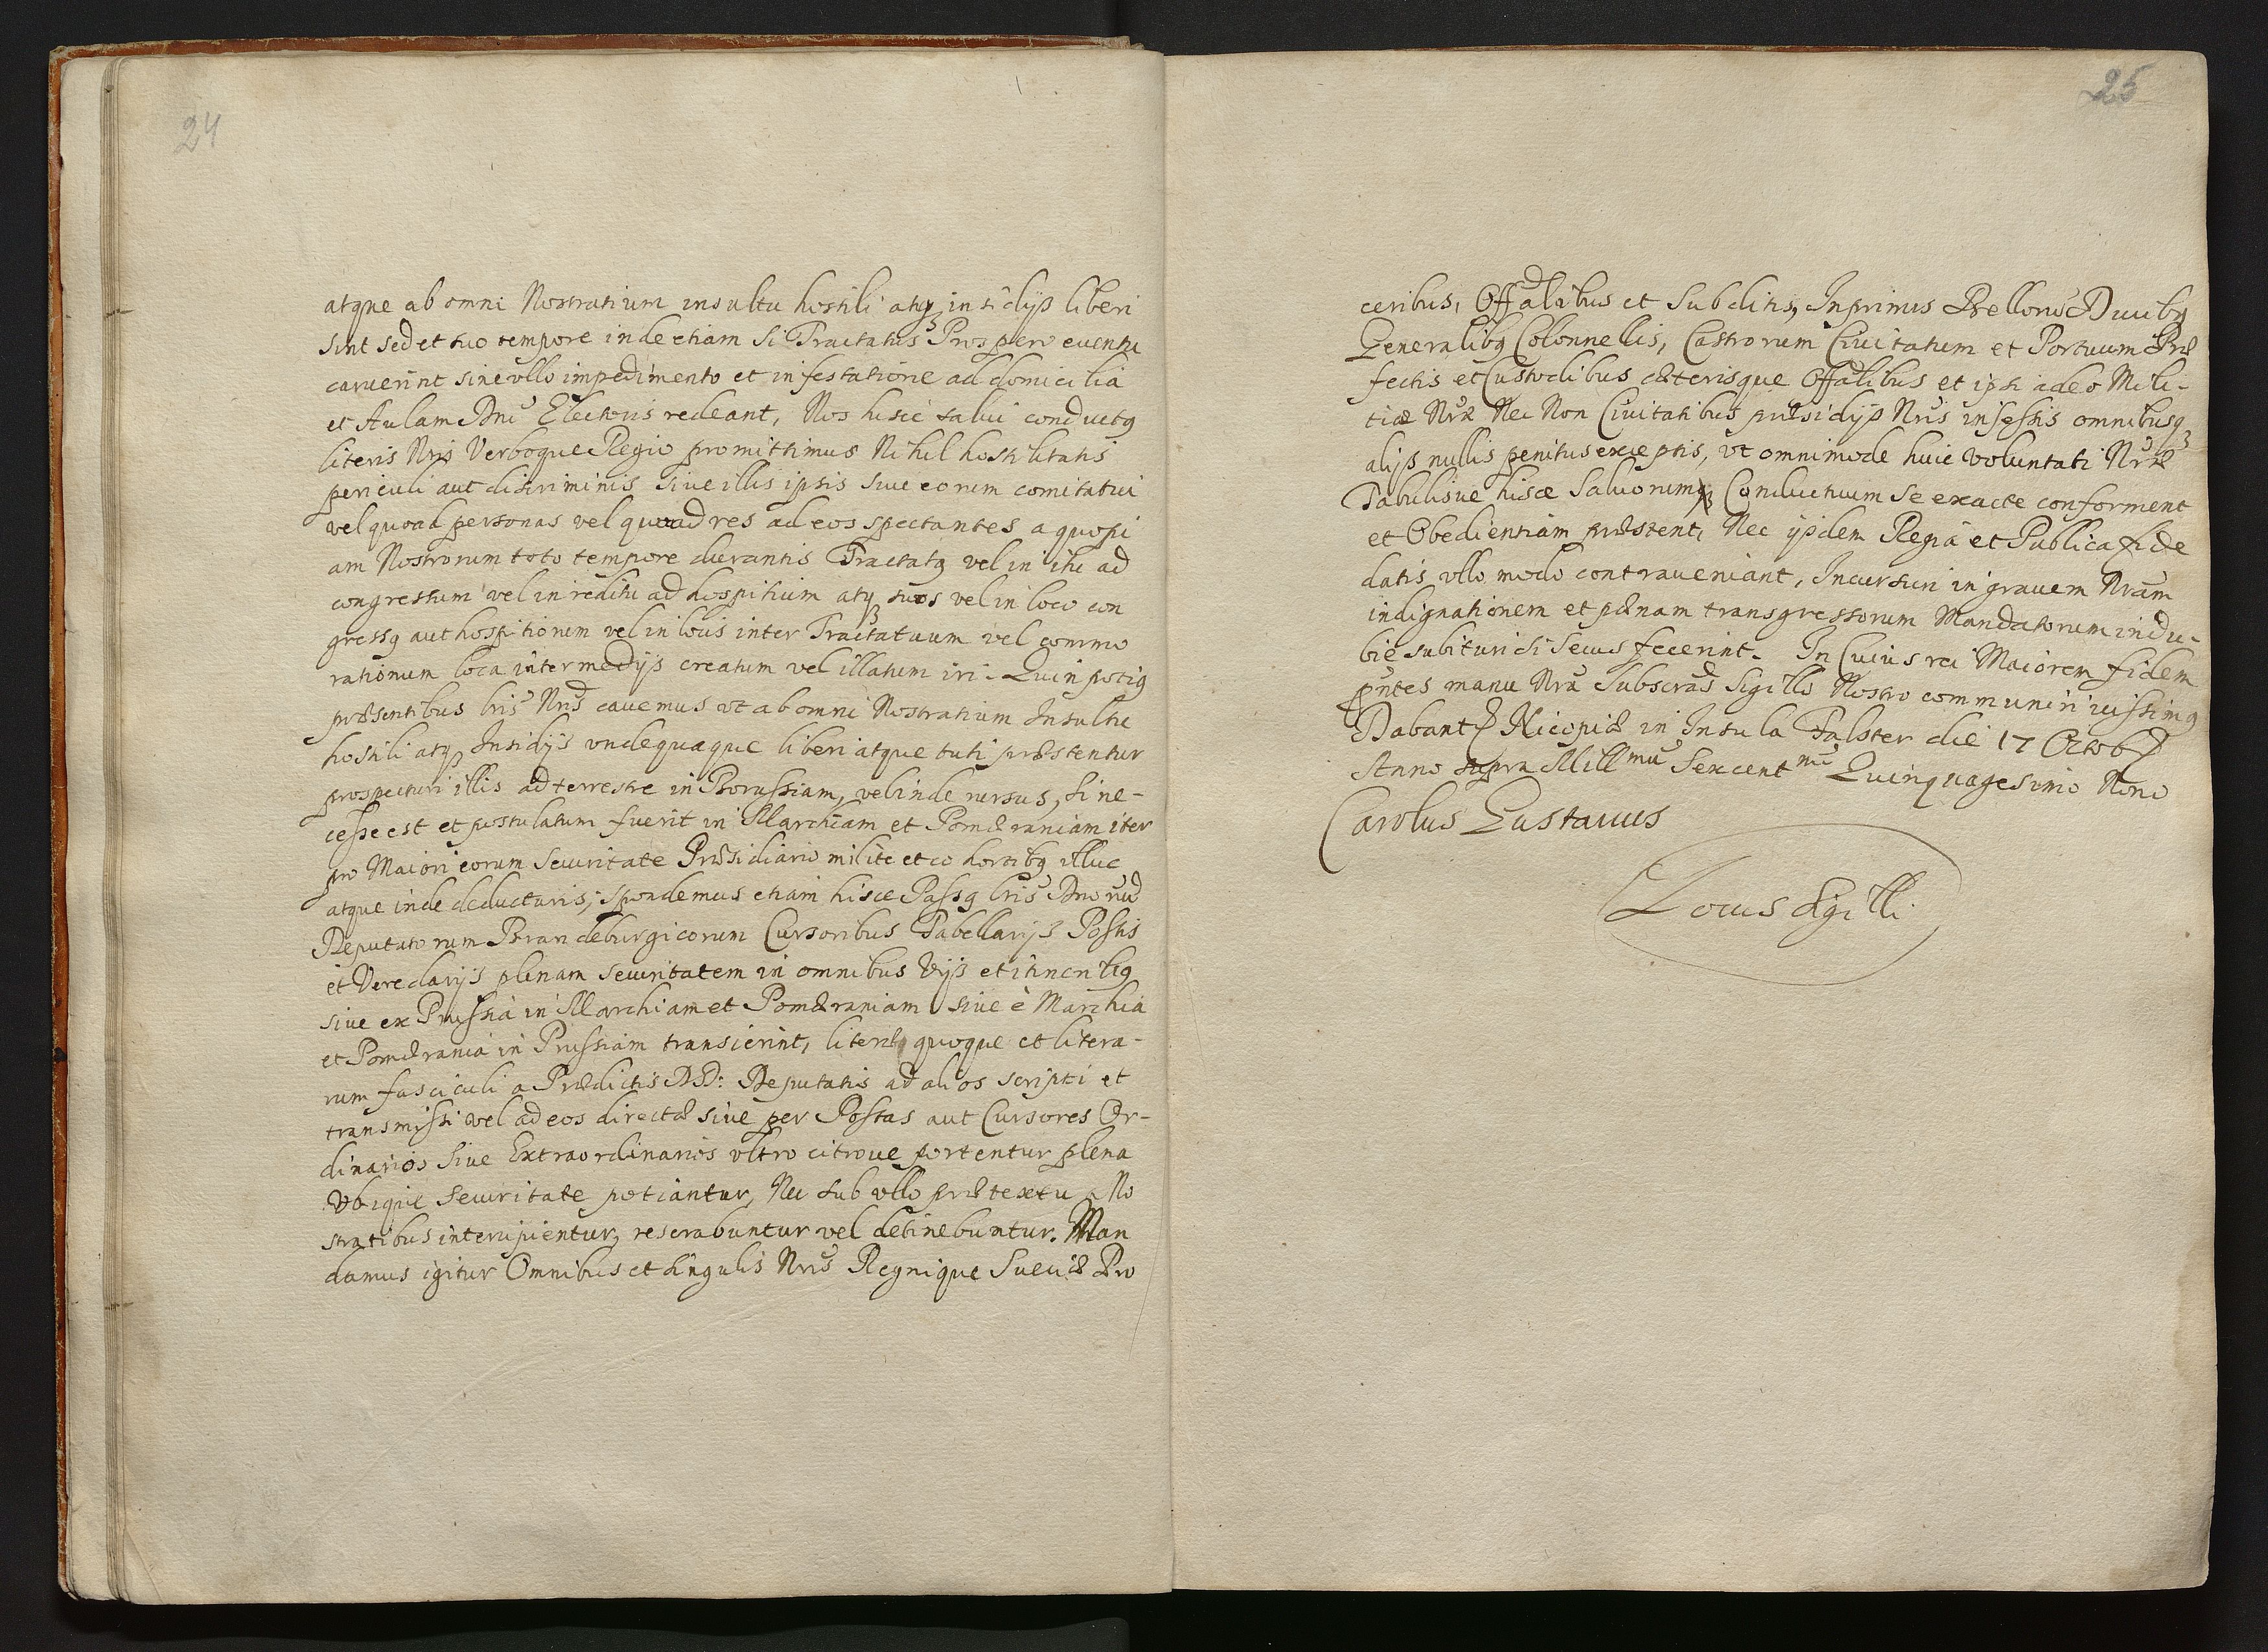 24
atque ab omni Nostratium insultu hostili atq insidijs liberi
sint sed et suo tempore inde etiam si Tractatus Prospero eventu
caruerint sine vllo impedimento et infestatione ad domicilia
et Aulam Dni Electoris redeant, Nos hisce salui conductq
literis Nris Verboque Regio promittimus Nihil hostilitatis
periculi aut discriminis siue illis ipsis siue eorum comitatui
vel quoad personas vel quoad res ad eos spectantes a quopi
am Nostrorum toto tempore durantis Tractatq vel in itu ad
congressum vel in reditu ad hospitium atq suos vel in loco con
gressq aut hospitiorum vel in locis inter Tractatuum vel commo
rationum loca intermedijs creatum vel illatum iri. Quin potiq
præsentibus lris Nris cauemus vt ab omni Nostratium Insultu
hostili atq Insidijs vndequaque liberi atque tuti præstentur
prospecturi illis ad terrestre in Borussiam, vel inde rursus, si ne-
cesse est et postulatum fuerit in Marchiam et Pomæraniam iter
pro Maiori eorum securitate Præsidiario milite et cohortibq illuc
atque inde deducturis; spondemus etiam hisce Passq lris Dnorum
Deputatorum Brandeburgicorum Cursoribus Tabellarijs Postis
et Veredarijs plenam securitatem in omnibus Vijs et itineribq
siue ex Prussia in Marchiam et Pomæraniam siue è Marchia
et Pomærania in Prussiam transierint, literæ quoque et litera-
rum fasciculi a Prædictis DD: Deputatis ad alios scripti et
transmissi vel ad eos directæ siue per Postas aut Cursores Or-
dinarios siue Extraordinarios vltro citroue portentur plena
Vbique securitate potiantur, Nec sub vllo prætextu a No
stratibus interipientur, reserabuntur vel detinebuntur. Man
damus igitur Omnibus et singulis Nris Regnique Sueciæ Pro
25
ceribus, Offalibus et Subditis, Inprimis Bellorum Ducibq
Generalibq Colonnellis, Castrorum Ciuitatum et Portuum Præ
fectis et Custodibus cæterisque Offalibus et ipsi adeo Mili-
tiæ Nræ Nec Non Ciuitatibus præsidijs Nris insessis omnibusq
alijs nullis penitus exceptis, vt omnimode huic Voluntati Nræ
Tabulisue hisce Saluorumq Conductuum se exacte conforment
et Obedientiam præstent, Nec ijsdem Regia et Publica fide
datis vllo modo contraueniant, Incursuri in grauem Nram
indignationem et pænam transgressorum Mandatorum indu-
bie subituri si secus fecerint. In Cuius rei Maiorem fidem
pntes manu Nra Subscras Sigillo Nostro communiri iussimq
Dabant Nicopiæ in Insula Falster die 17 Octob
Anno supra Mill mu Sexcent mu Quinquagesimo Nono
Carolus Gustauus
Locus Sigilli